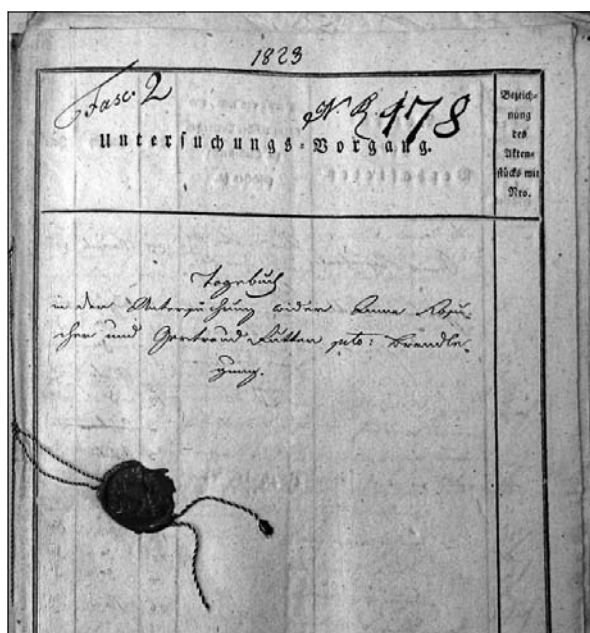 1823
Fasc. 2
N. R. 178
Untersuchungs-Vorgang.
Bezeich-
nung
des
Akten-
stücks mit
Nro.
Tagebuch
in der Untersuchung wider Anna
cher und Gertraud pcto: Brandle-
gung.